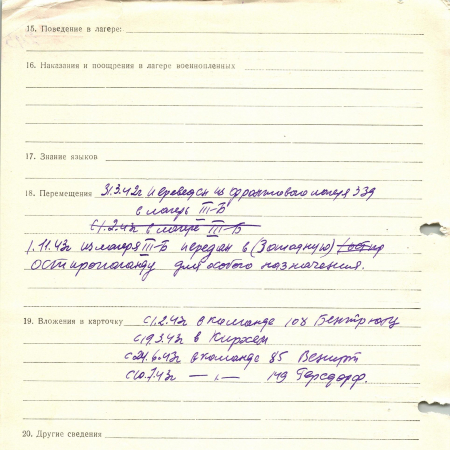 15. Поведение в лагере:
16. Наказания и поощрения в лагере военнопленных
17. Знание языков
18. Перемещения 31.3.42г переведен из фронтового лагеря 339
в лагерь III-Б
с 1.2.43г в лагере III-Б
1.11.43г из лагеря III-Б передан в (Западную)
Остпропаганду для особого назначения.
19. Вложения в карточку с 1.2.43г в команде 108
с 19.3.43г в Кирхен
с 24.6.43г в команде 85
с 10.7.43г — „ — 149 Герсдорф.
20. Другие сведения